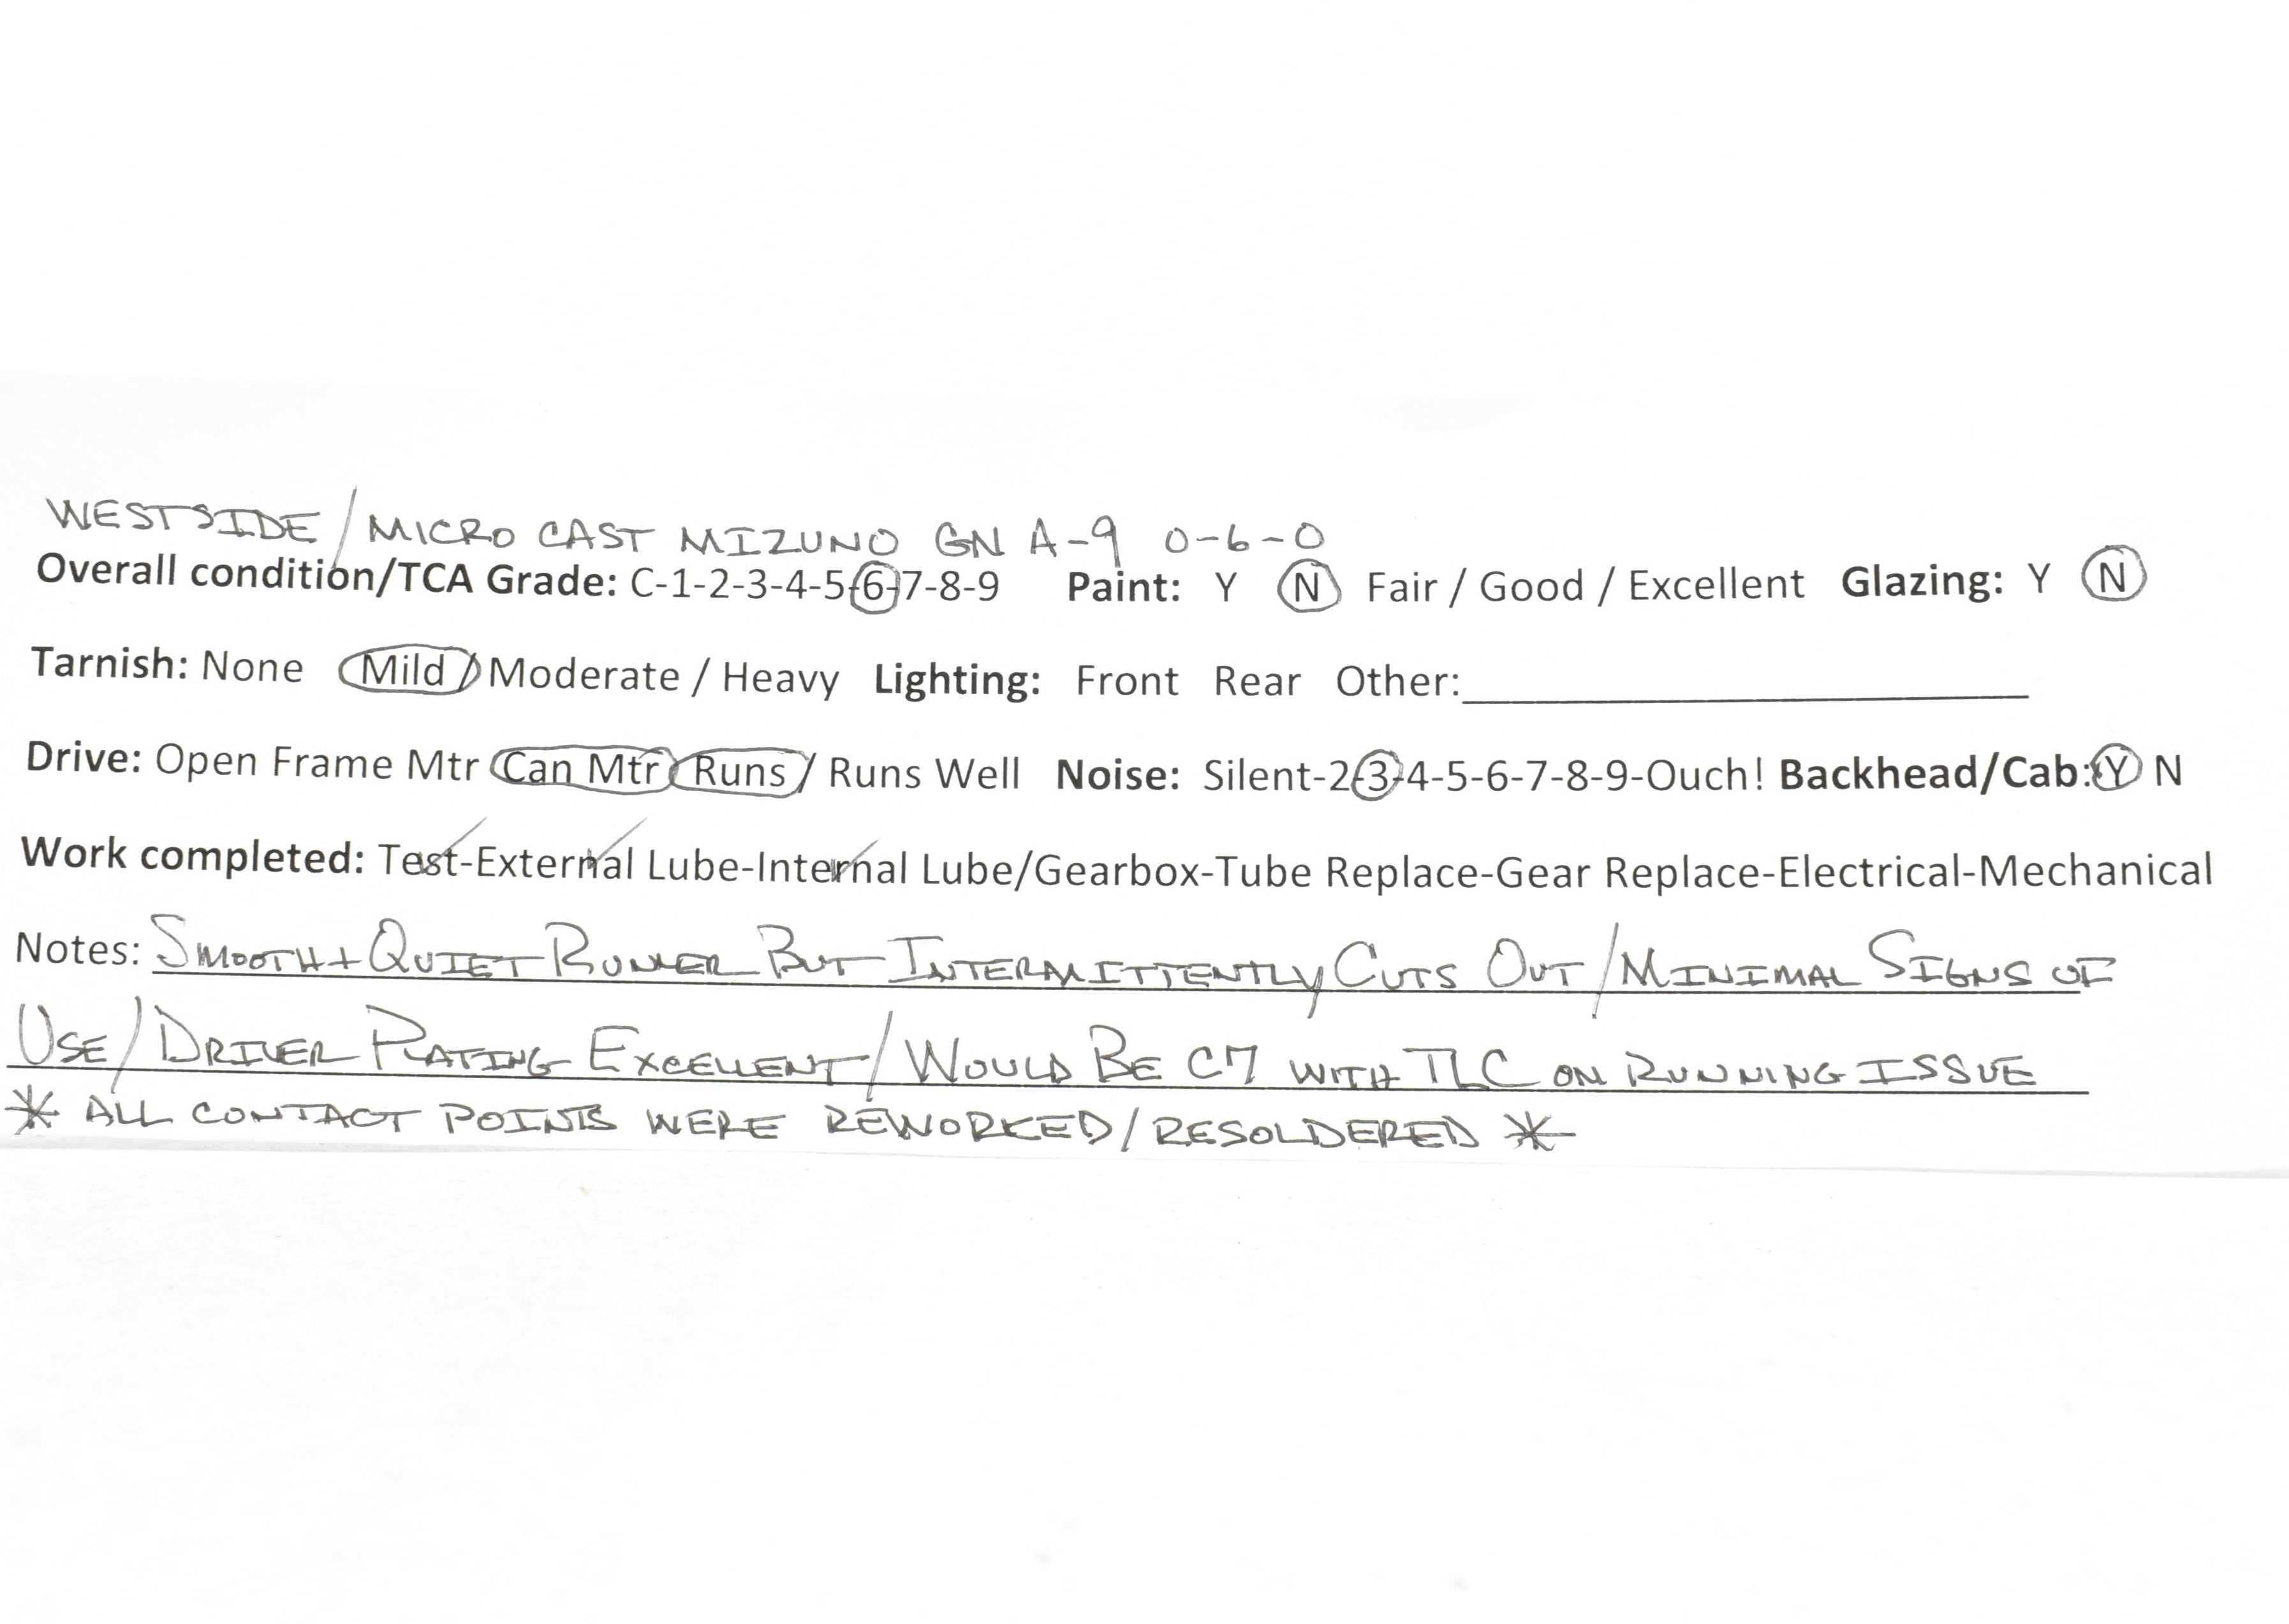 WESTSIDE / MICRO CAST MIZUNO GN A-9 0-6-0
Overall condition/TCA Grade: C-1-2-3-4-5-6-7-8-9 Paint: Y N Fair / Good / Excellent Glazing: Y N
Tarnish: None Mild / Moderate / Heavy Lighting: Front Rear Other:
Drive: Open Frame Mtr Can Mtr Runs / Runs Well Noise: Silent-2-3-4-5-6-7-8-9-Ouch! Backhead/Cab: Y N
Work completed: Test-External Lube-Internal Lube/Gearbox-Tube Replace-Gear Replace-Electrical-Mechanical
Notes: SMOOTH + QUIET RUNNER BUT INTERMITTENTLY CUTS OUT / MINIMAL SIGNS OF
USE / DRIVER PLATING EXCELLENT / WOULD BE C7 WITH TLC ON RUNNING ISSUE
* ALL CONTACT POINTS WERE REWORKED / RESOLDERED *